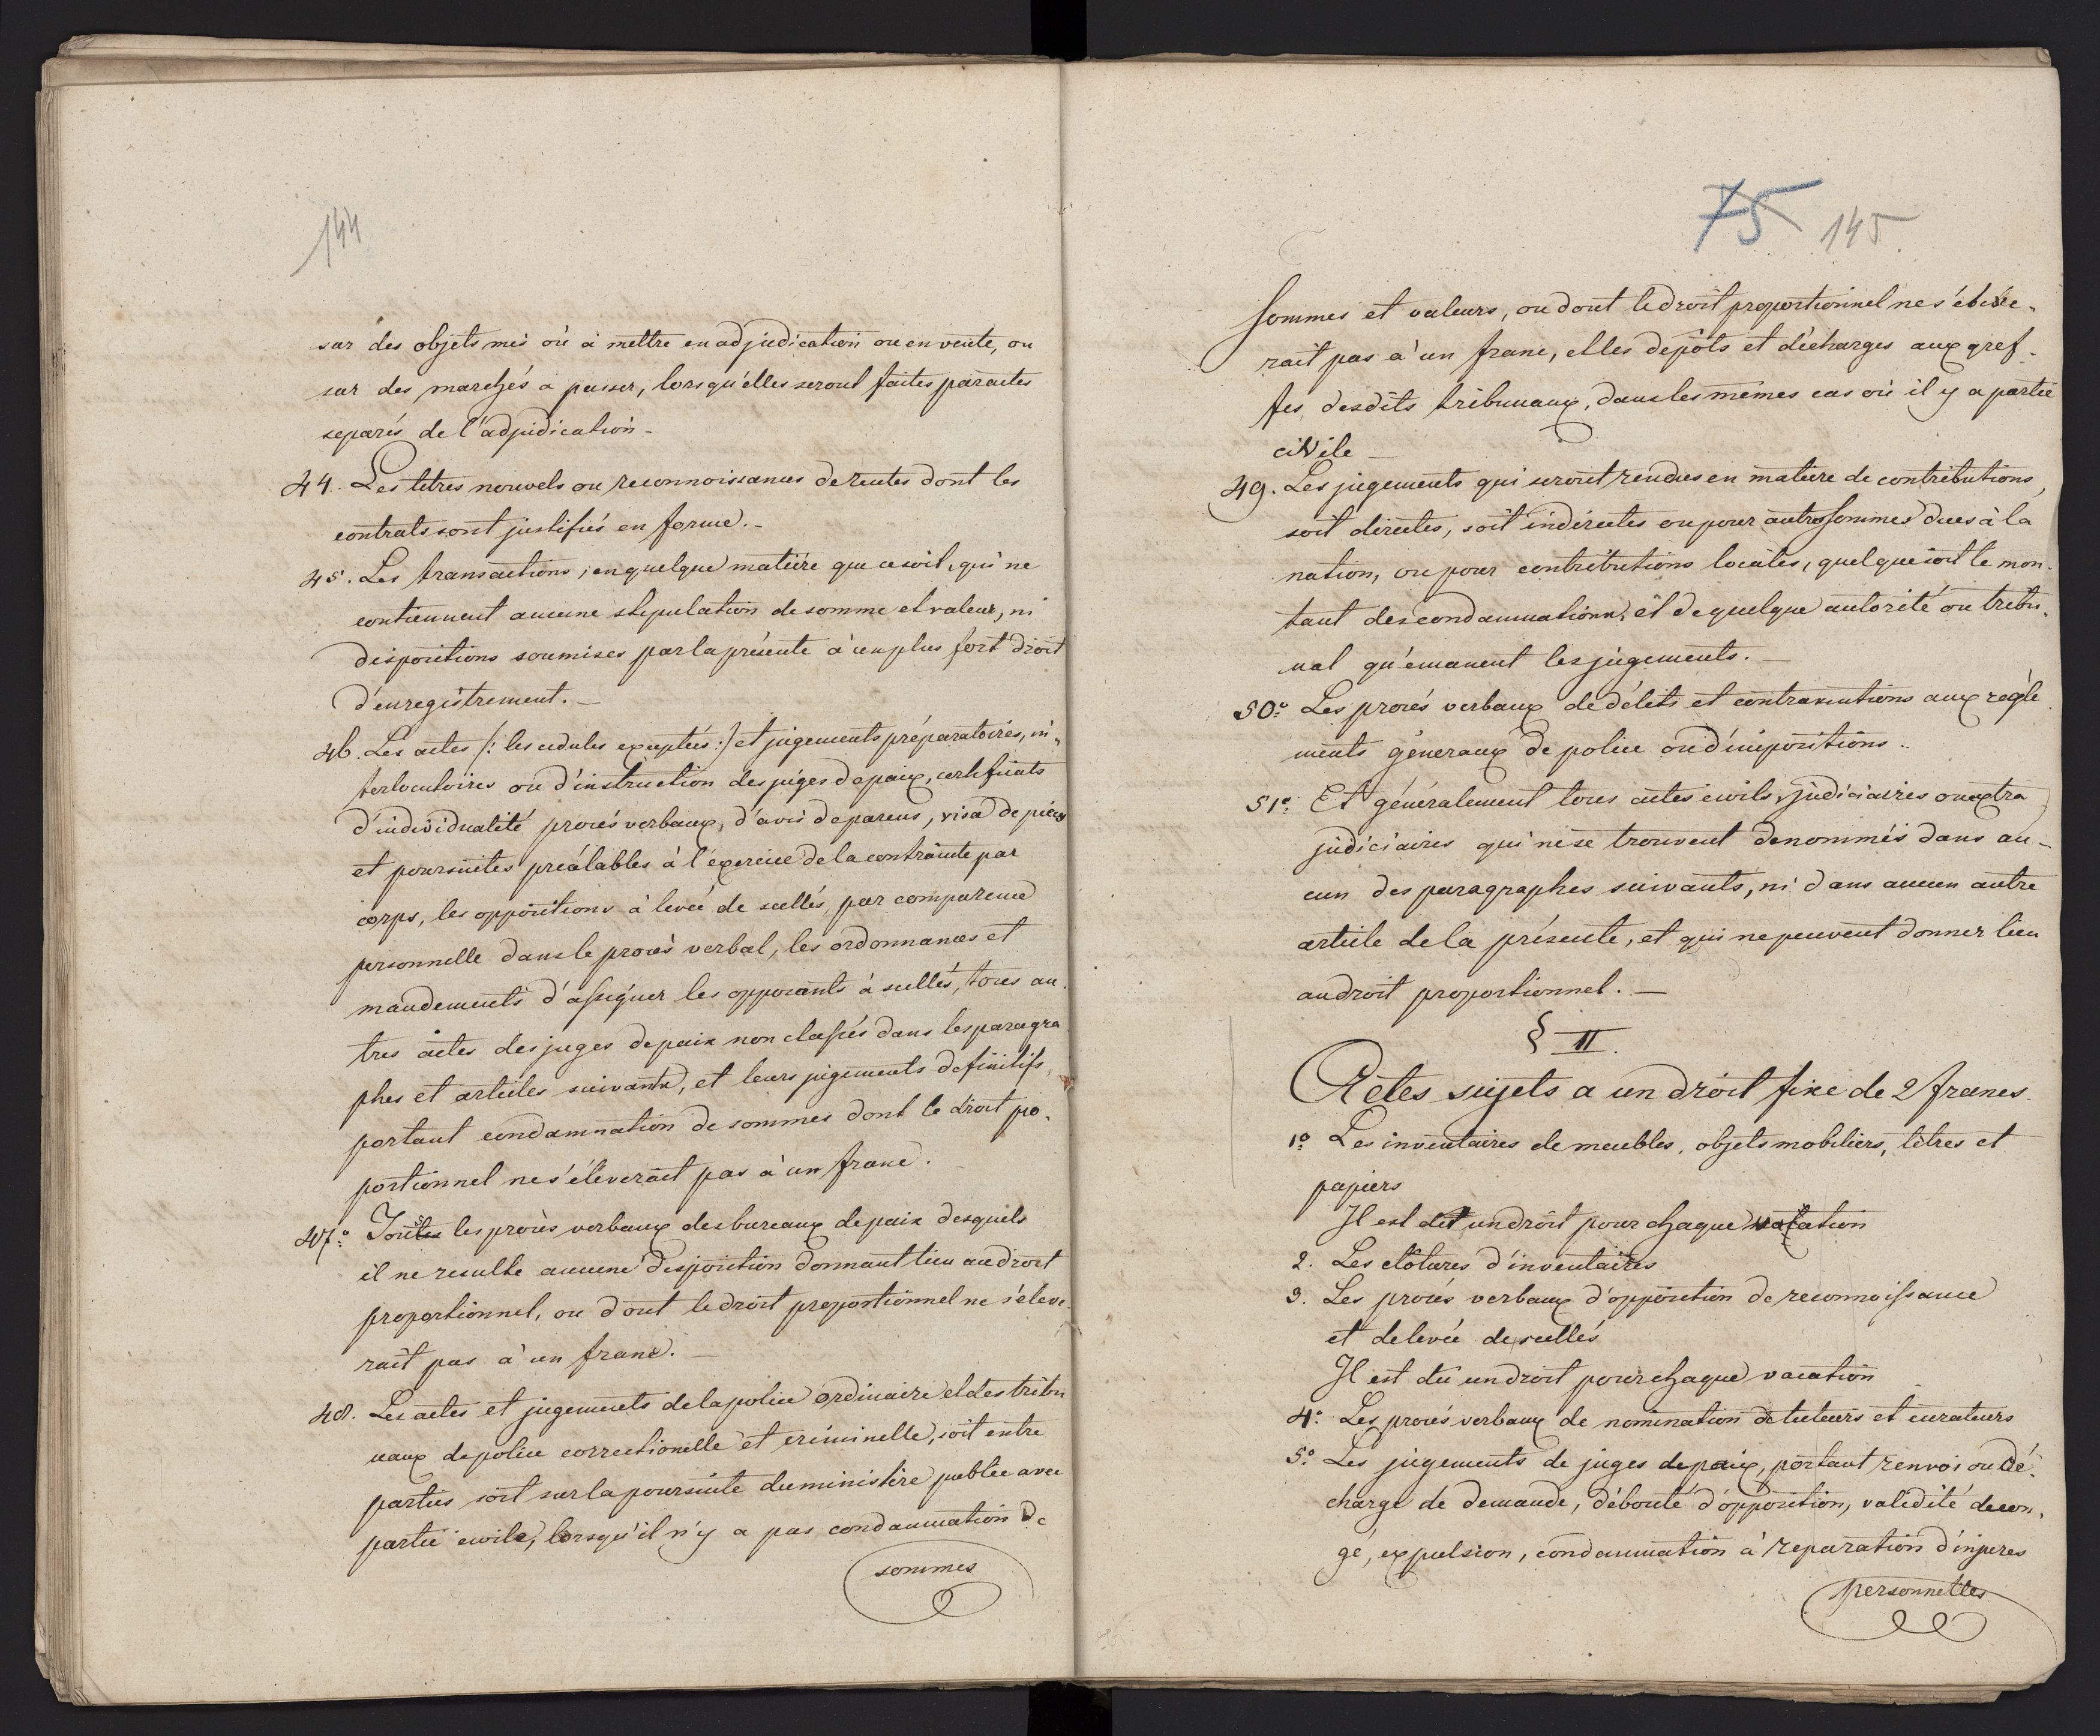 144
sur des objets mis où à mettre en adjudication ou en vente, ou
sur des marchés a passer, lorsqu'elles seront faites par actes
separés de l'adjudication -
44. Les titres nouvels ou reconnoissances de rentes dont les
contrats sont justifiés en forme. -
45. Les transactions, en quelque matière que ce soit, qui ne
contiennent aucune stipulation de somme et valeur, ni
dispositions soumises par la présente à un plus fort droit
d'enregistrement. -
46. Les actes /: les cedules exceptées :/ et jugements préparatoires, in-
terlocutoires ou d'instruction des juges de paix, certificats
d'individualité procès verbaux, d'avis de parens, visa de pièces
et poursuites préalables à l'exercice de la contrainte par
corps, les oppositions à levée de scellés, par comparence
personnelle dans le procès verbal, les ordonnances et
mandements d'assigner les opposants à scellés, tous au-
tres actes des juges de paix non classés dans les paragra
phes et articles suivants, et leurs jugements definitifs,
portant condamnation de sommes dont le droit pro-
portionnel ne s'éleverait pas à un franc.
47.° Tous les procès verbaux des bureaux de paix desquels
il ne resulte aucune disposition donnant lieu au droit
proportionnel, ou dont le droit proportionnel ne s'eleve-
rait pas à un franc. -
48. Les actes et jugements de la police ordinaire et des tribu
naux de police correctionelle et criminelle, soit entre
parties soit sur la poursuite du ministère public avec
partie civile, lorsqu'il n'y a pas condamnation de
sommes
75 145.
sommes et valeurs, ou dont le droit proportionnel ne s'éleve-
rait pas à un franc, et les depôts et décharges aux gref-
fes desdits tribunaux, dans les mêmes cas où il y a partie
civile -
49. Les jugements qui seront rendus en matière de contributions,
soit directes, soit indirectes ou pour autres sommes dues à la
nation, ou pour contributions locales, quel que soit le mon-
tant des condamnations, et de quelque autorité ou tribu-
nal qu'emanent les jugements. -
50.° Les procés verbaux de délits et contraventions aux règle
ments géneraux de police ou d'impositions..
51.° Et généralement tous actes civils, judiciaires ou extra
judiciaires qui ne se trouvent denommés dans au-
cun des paragraphes suivants, ni dans aucun autre
article de la présente, et qui ne peuvent donner lieu
au droit proportionnel. -
§ II.
Actes sujets a un droit fixe de 2 francs.
1.° Les inventaires de meubles, objets mobiliers, titres et
papiers
Il est dû un droit pour chaque vacation
2. Les clôtures d'inventaires
3. Les procés verbaux d'opposition de reconnoissance
et de levée de scellés
Il est du un droit pour chaque vacation
4.° Les procés verbaux de nomination de tuteurs et curateurs
5.° Les jugements de juges de paix, portant renvoi ou dé-
charge de demande, débouté d'opposition, validité de con-
gé, expulsion, condamnation à reparation d'injures
personnelles